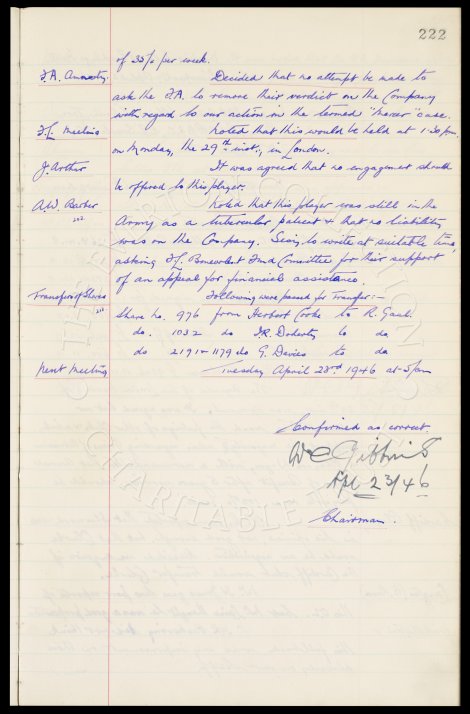 222
of 35/- per week.
F.A. Amnesty. Decided that no attempt be made to
ask the F.A. to remove their verdict on the Company
with regard to our action in the termed " " case.
F.L. Meeting Noted that this would be held at 1-30 p.m.
on Monday, the 29th inst., in London.
J. Arthur It was agreed that no engagement should
be offered to this player.
A.W. Barber Noted that this player was still in the
222
Army as a tubercular patient & that no liability
was on the Company. Secy. to write at suitable time,
asking F.L. Benevolent Fund Committee for their support
of an appeal for financial assistance.
Transfers of Shares Following were passed for Transfer:-
Share No. 976 from Herbert Cooke to R. Gaul.
do. 1032 do J.R. Doherty to do
do 219 1179 do G. Davies to do
Next Meeting Tuesday April 23rd 1946 at 5 pm
Confirmed as correct.
W C Gibbins
Apl 23/46
Chairman.
THE EVERTON COLLECTION
CHARITABLE